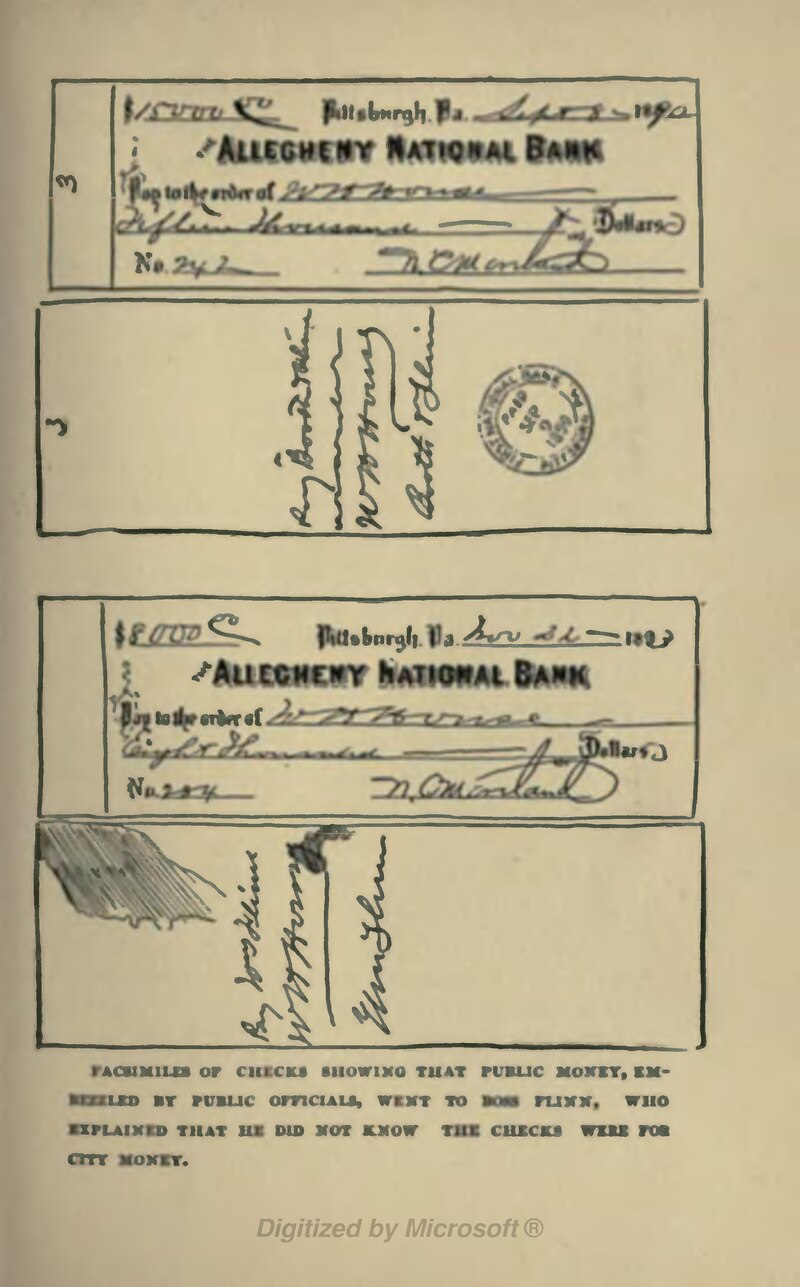 3
$15000 Pittsburgh, Pa. Sept 8 1890
ALLEGHENY NATIONAL BANK
Pay to the order of W H House
Fifteen Thousand Dollars
No. 242 N. C. Moreland
3
Pay Booth & Flinn
or order
W H House
Booth & Flinn
NATIONAL BANK
PAID
SEP
9
1890
PITTSBURGH
$8000 Pittsburgh, Pa. Nov 189
ALLEGHENY NATIONAL BANK
Pay to the order of W H House
Eight Thousand Dollars
No. 284 N. C. Moreland
Pay Wm Flinn
W H House
Wm Flinn
FACSIMILES OF CHECKS SHOWING THAT PUBLIC MONEY, EM-
BEZZLED BY PUBLIC OFFICIALS, WENT TO BOSS FLINN, WHO
EXPLAINED THAT HE DID NOT KNOW THE CHECKS WERE FOR
CITY MONEY.
Digitized by Microsoft ®